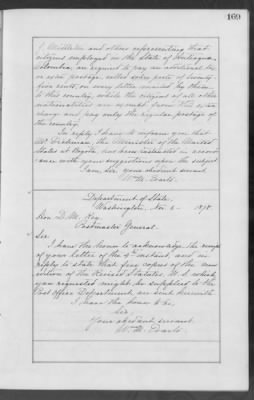 169
J. Middleton and others representing that
citizens employed in the State of Antioquia
Colombia, are required to pay an additional tax
or extra postage, called sobre porte of twenty
five cents, on every letter received by them
in this country, while the citizens of all other
nationalities are exempt from this extra
charge and pay only the regular postage of
the country.
In reply I have to inform you that
Mr. Dichman, the Minister of the United
States at Bogota, has been instructed in accord-
ance with your suggestions upon the subject.
I am, Sir, your obedient servant
Wm. M. Evarts.
Department of State,
Washington, Nov. 6 1878.
Hon. D. M. Key,
Postmaster General.
Sir:
I have the honor to acknowledge the receipt
of your letter of the 4th instant, and in
reply to state that five copies of the new
edition of the Revised Statutes, U. S. which
you requested might be supplied to the
Post Office Department, are sent herewith.
I have the honor to be,
Sir,
Your obedient servant
Wm. M. Evarts